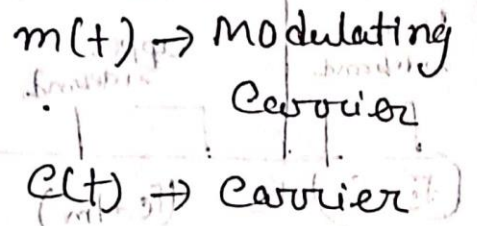 m(t) → Modulating
Carrier
C(t) → Carrier